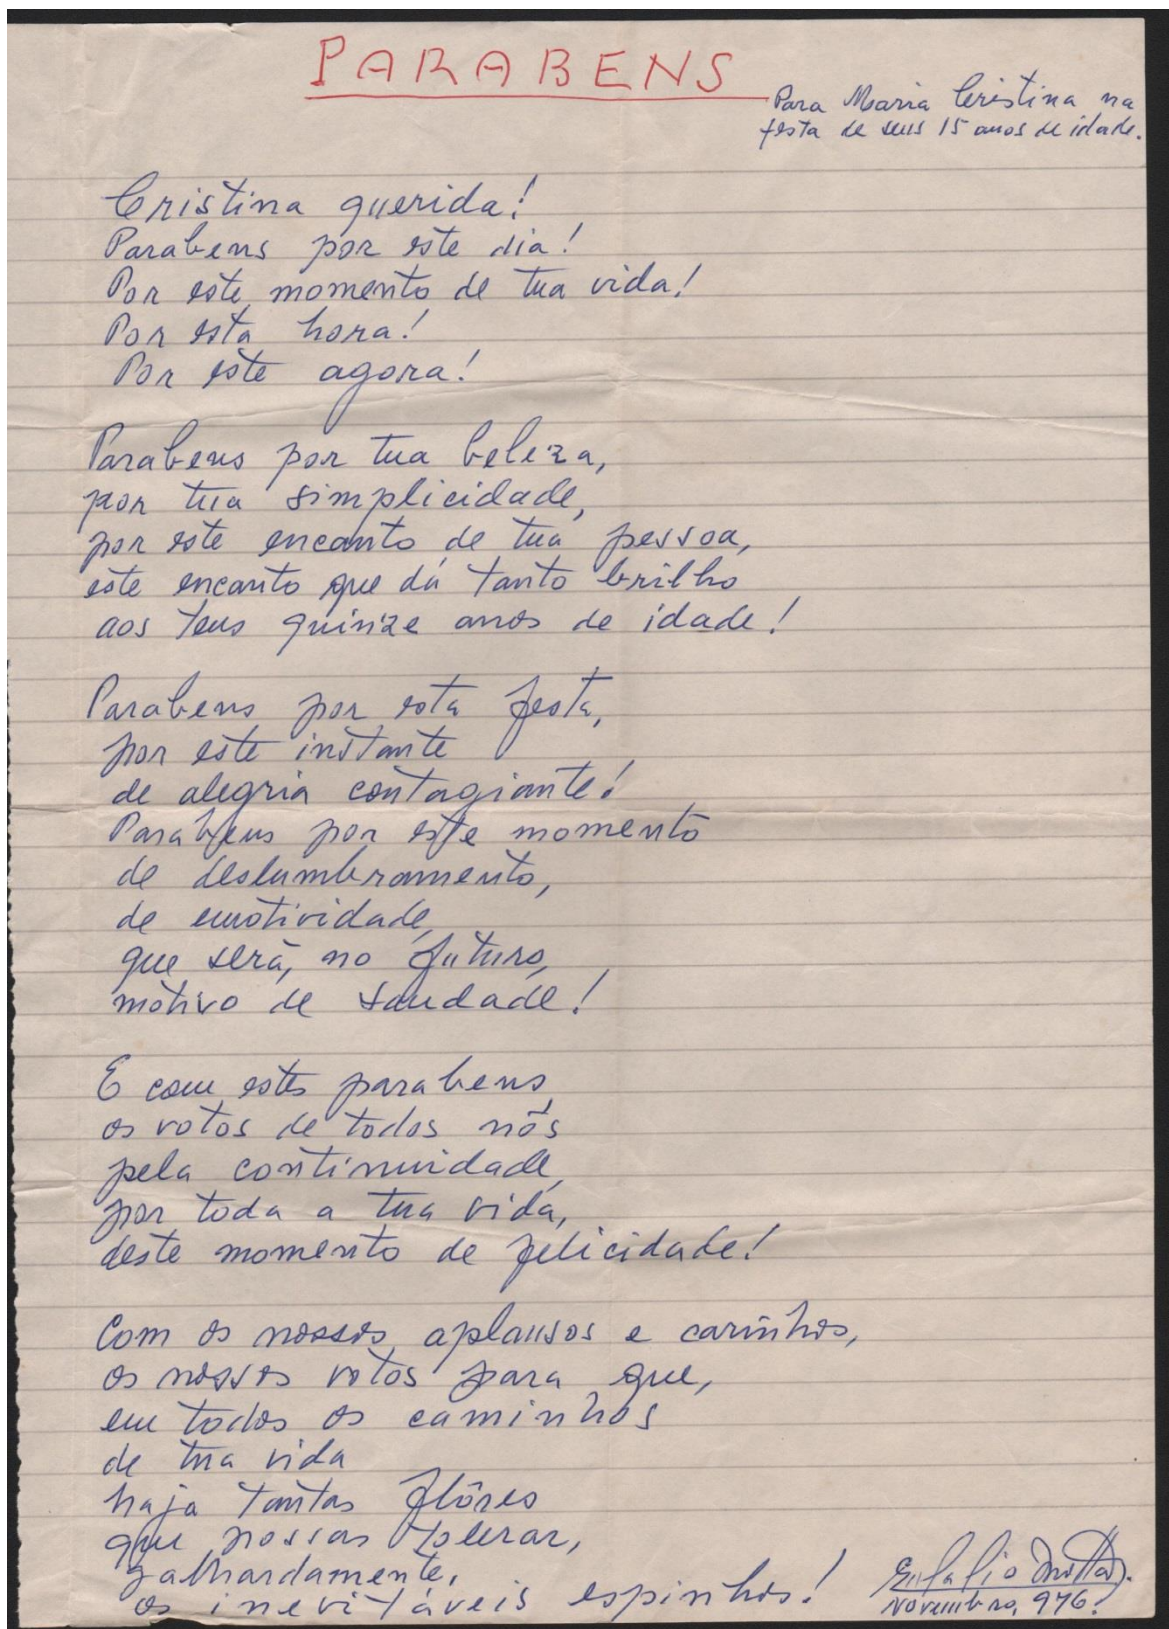 PARABENS
Para Maria Cristina na
festa de seus 15 anos de idade.
Cristina querida!
Parabens por este dia!
Por este momento de tua vida!
Por esta hora!
Por este agora!
Parabens por tua beleza,
por tua simplicidade,
por este encanto de tua pessoa,
este encanto que dá tanto brilho
aos teus quinze anos de idade!
Parabens por esta festa,
por este instante
de alegria contagiante!
Parabens por este momento
de deslumbramento,
de emotividade,
que será, no futuro,
motivo de saudade!
E com estes parabens,
os votos de todos nós
pela continuidade,
por toda a tua vida,
deste momento de felicidade!
Com os nossos aplausos e carinhos,
os nossos votos para que,
em todos os caminhos
de tua vida
haja tantas flôres
que possas tolerar,
galhardamente,
os inevitáveis espinhos!
Eulalio Motta.
Novembro, 976.